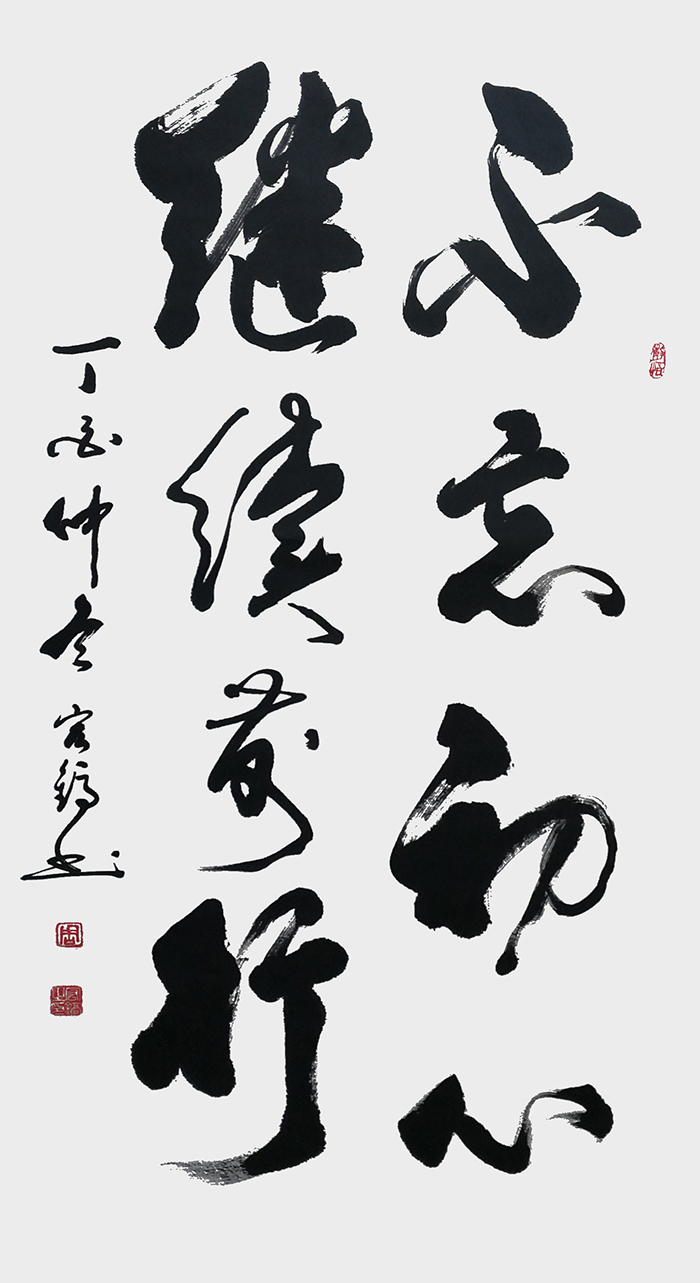 不忘初心
继续前行
丁酉仲冬宏鹤书